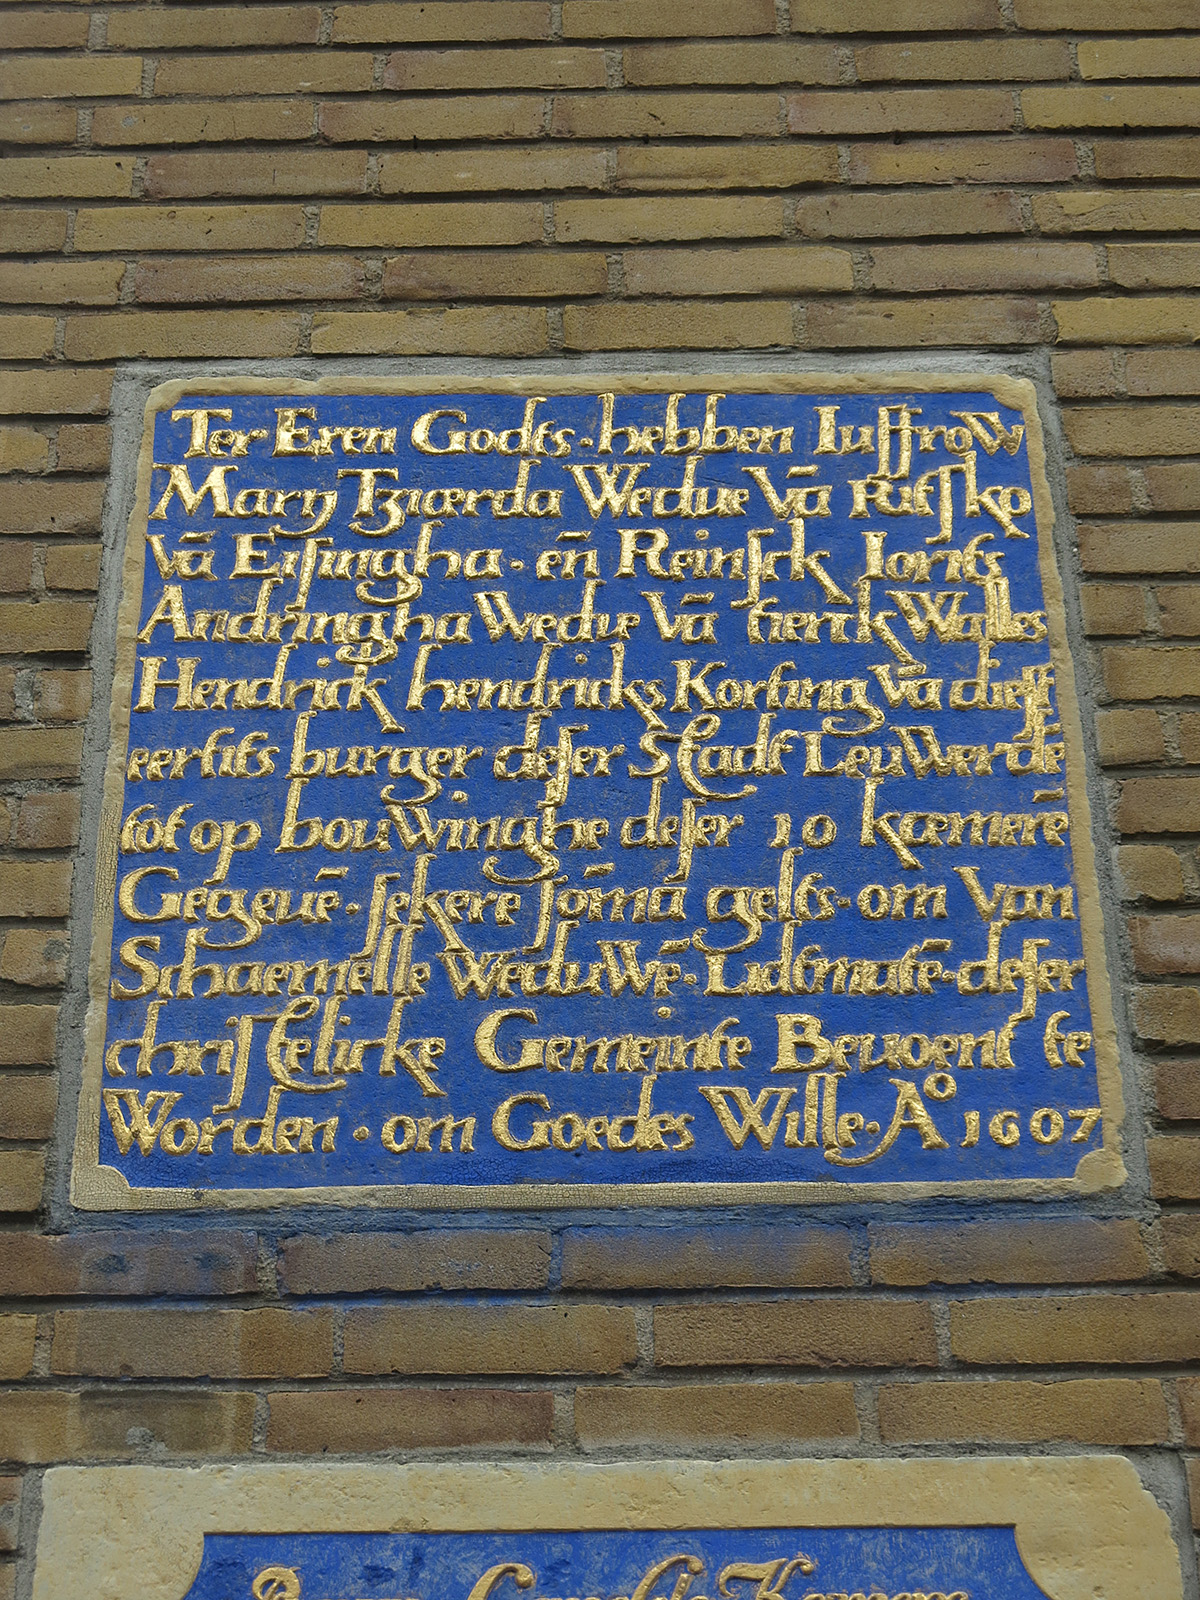 Ter Eren Godts·hebben Iuffrow
Marij Tziærda Wedue Vā Riesko
Vā Eisingha·en̄ Reinsck Ionts
Andringha Wedue Vā tierck Walles
Hendrick hendricks Korting Vā dieff
eertits burger deser Stadt LeuWerdē
tot op bouWinghe deser 10 kæmerē
Gegeuē·sekere sōma gelts·om Van
Schaemelle WeduWē·Lidtmatē·deser
christelicke Gemeinte Beuoent te
Worden·om Goedes Wille·Aº 1607